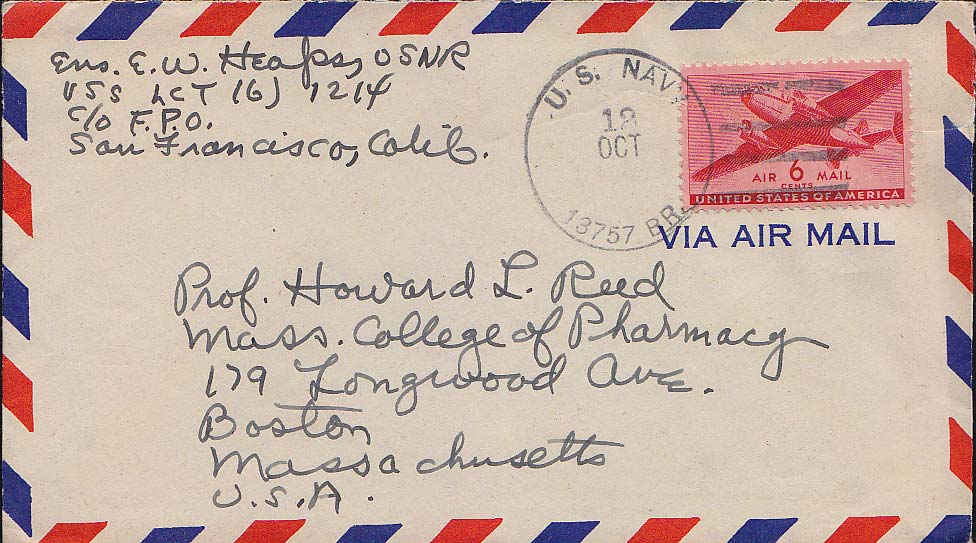 Ens. E. W. Heaps, USNR
USS LCT (6) 1214
c/o F.P.O.
San Francisco, Calif.
U.S. NAVY
12
OCT
13757 BR.
AIR 6 MAIL
CENTS
UNITED STATES OF AMERICA
VIA AIR MAIL
Prof. Howard L. Reed
Mass. College of Pharmacy
179 Longwood Ave.
Boston
Massachusetts
U.S.A.